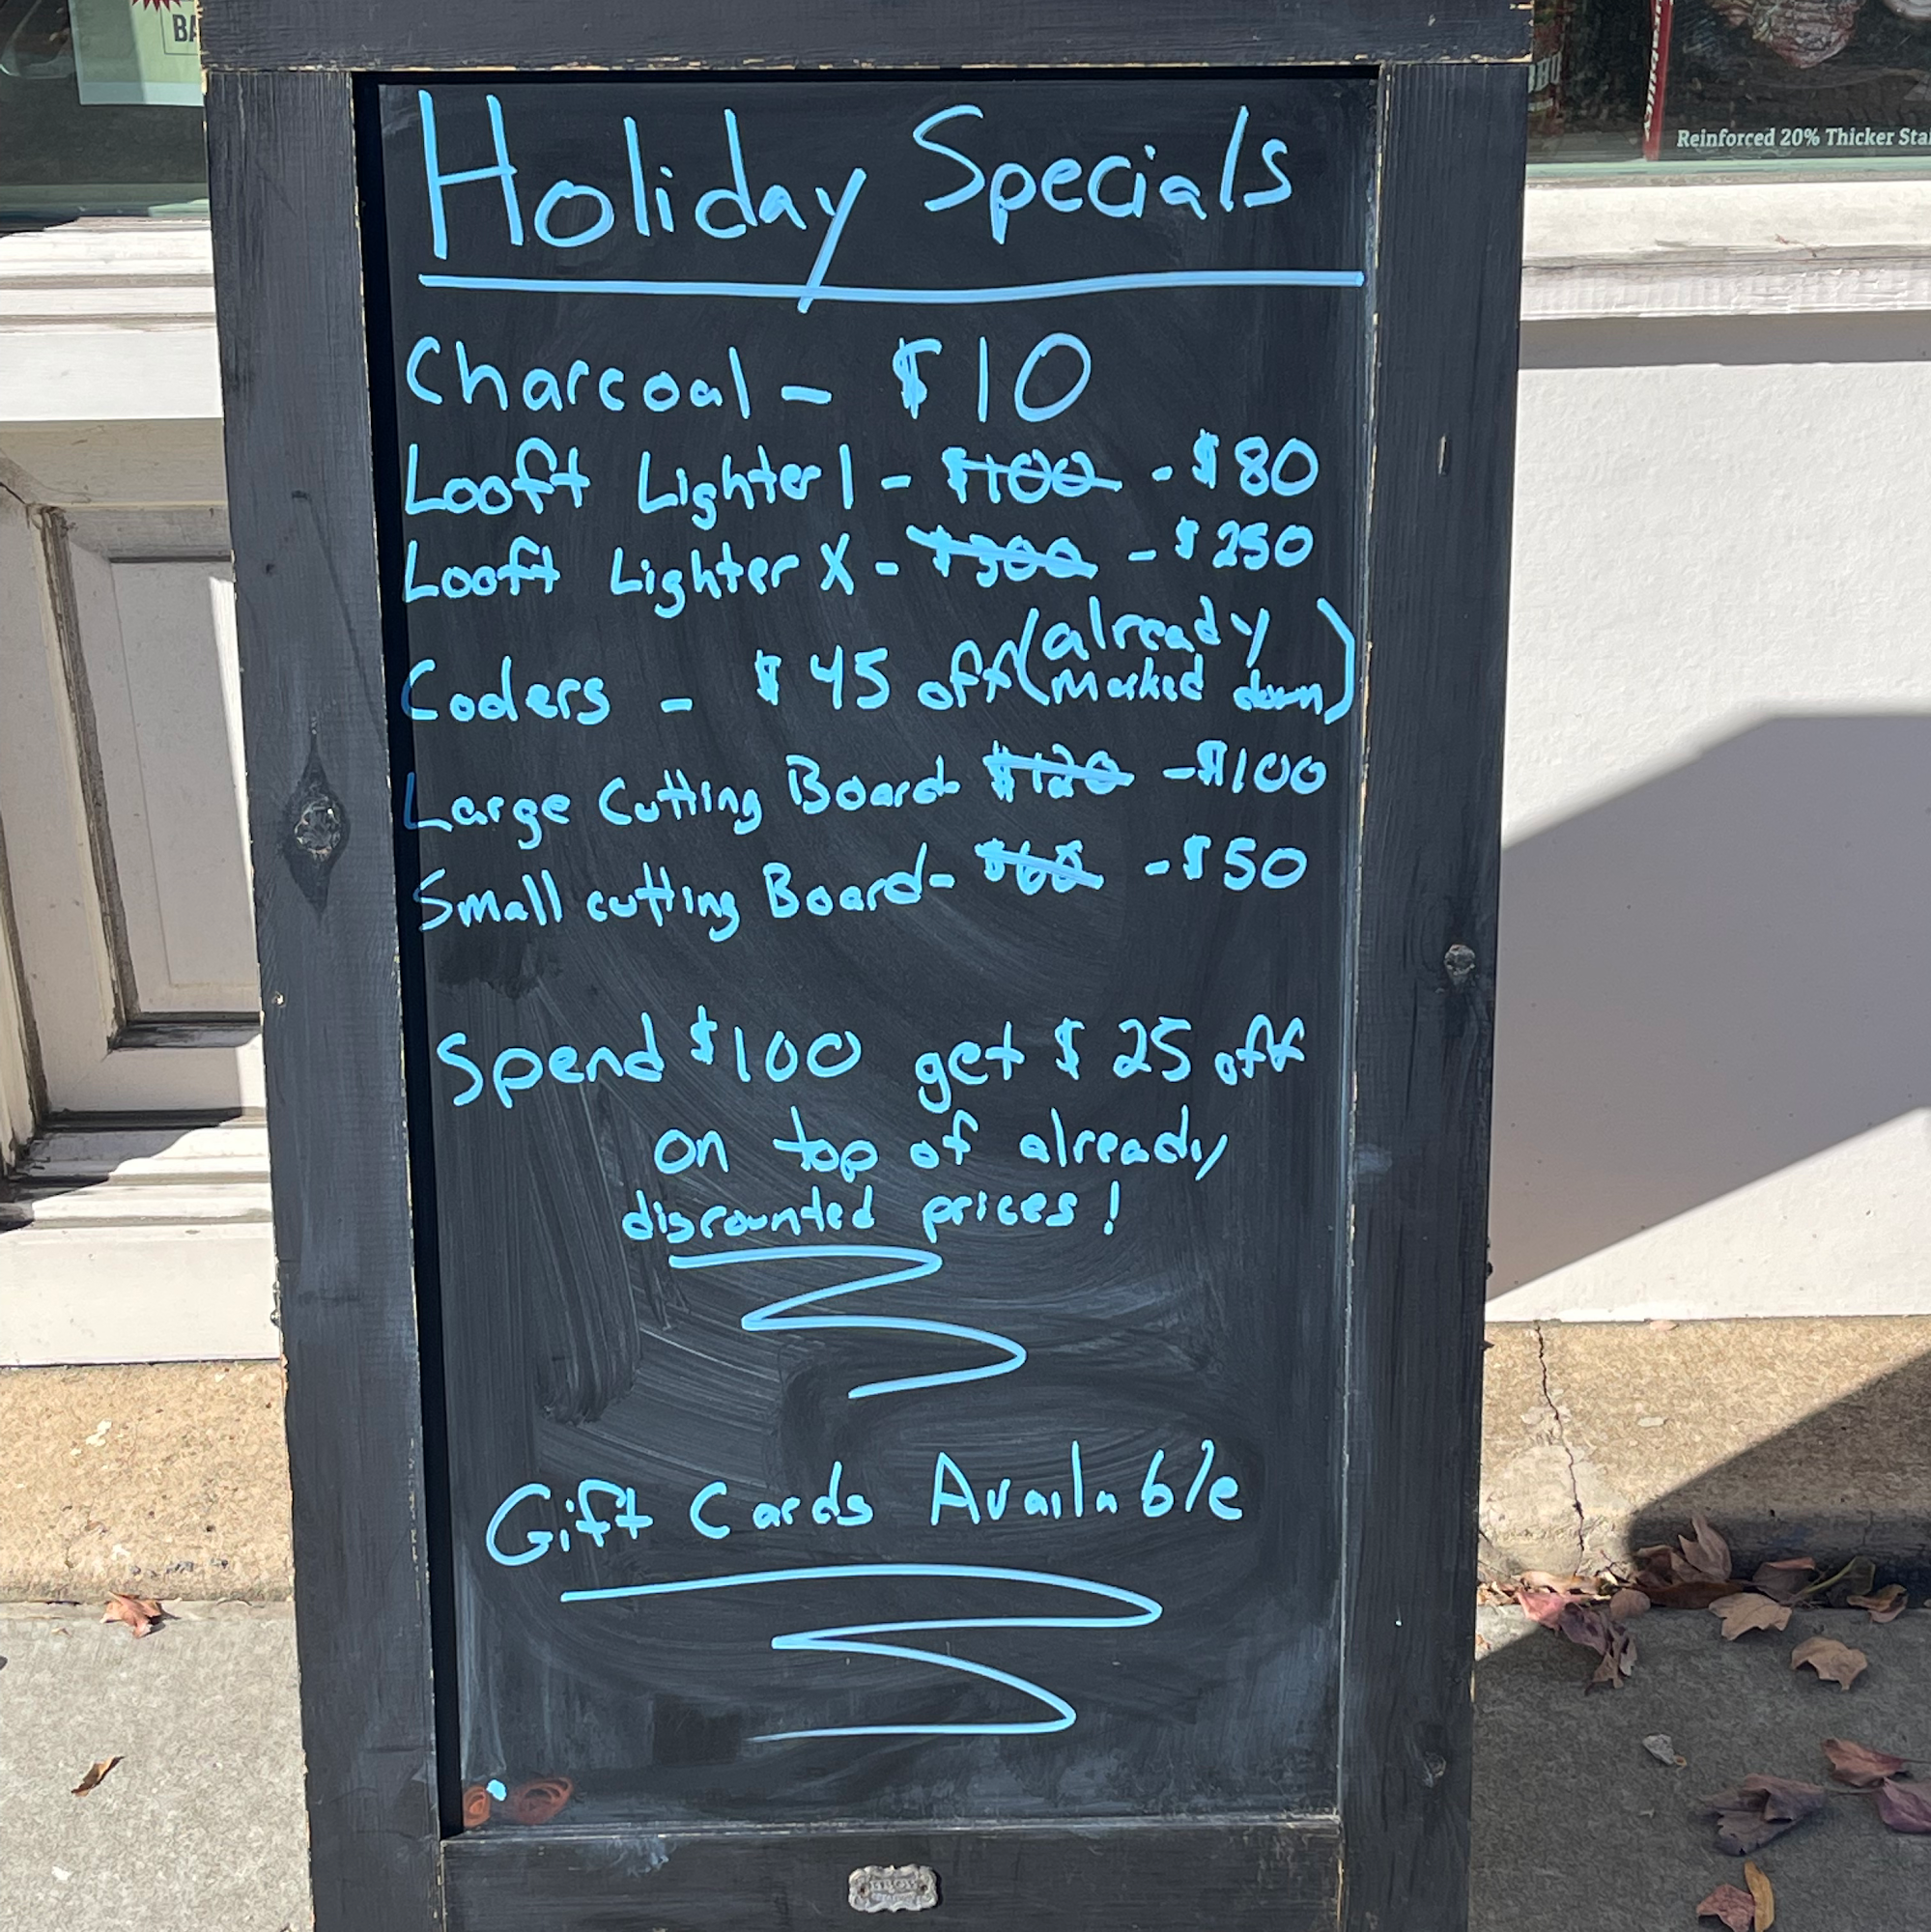 BA
Reinforced 20% Thicker Sta
Holiday Specials
Charcoal - $10
Looft Lighter 1 - $100 - $80
Looft Lighter X - $300 - $250
Coolers - $45 off (already marked down)
Large Cutting Board - $120 - $100
Small cutting Board - $60 - $50
Spend $100 get $25 off
on top of already
discounted prices!
Gift Cards Available